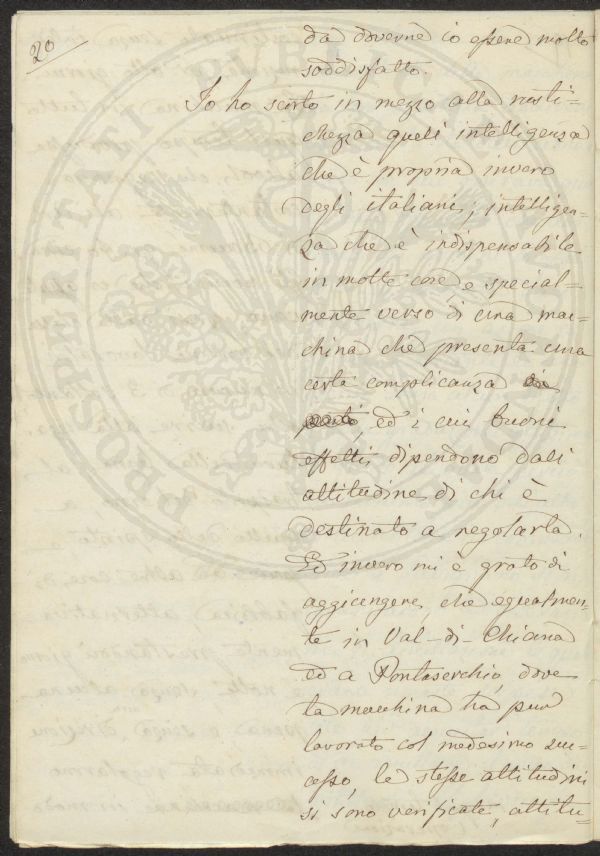 20
da doverne io essere molto
soddisfatto.
Io ho scorto in mezzo alla rusti=
chezza quell'intelligenza
che è propria invero
degli italiani; intelligen=
za che è indispensabile
in molte cose, e special=
mente verso di una mac=
china che presenta una
certa complicanza
ed i cui buoni
effetti, dipendono dall'
attitudine di chi è
destinato a regolarla.
Ed invero mi è grato di
aggiungere, che egualmen=
te in Val-di-Chiana
ed a Pontaserchio, dove
la macchina ha pur
lavorato col medesimo suc=
cesso, le stesse attitudini
si sono verificate, attitu=